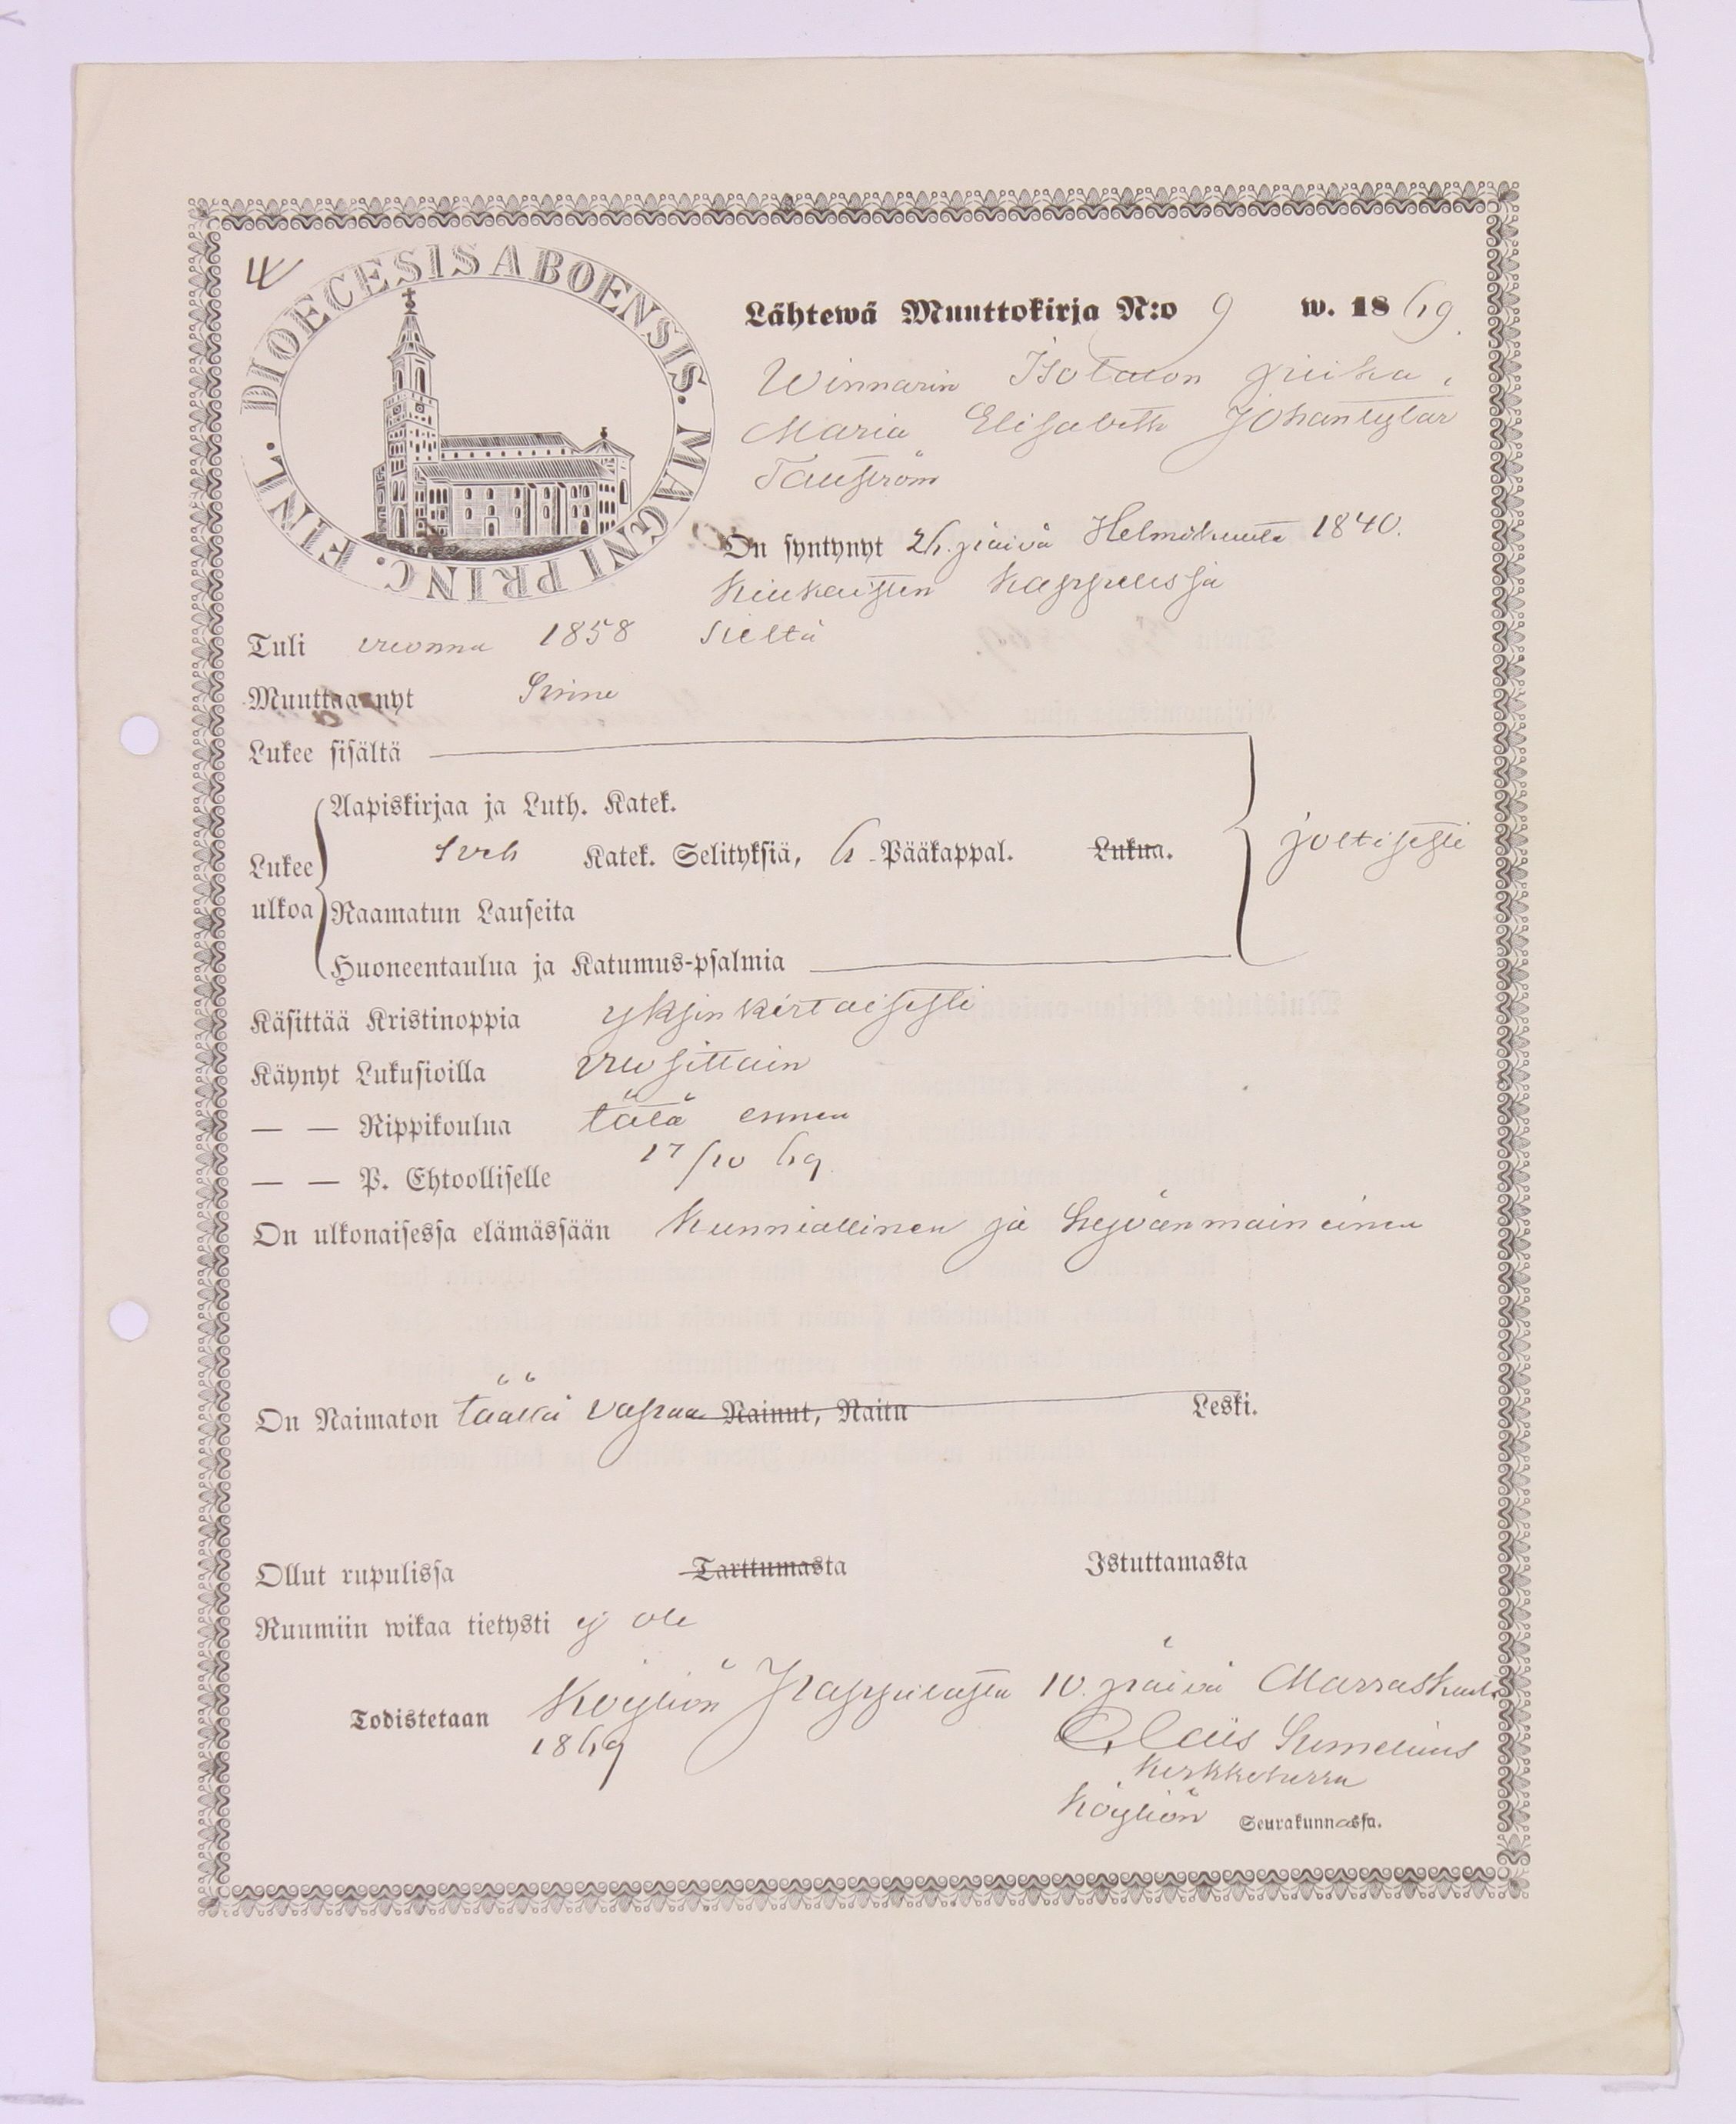 4
DIOECESIS ABOENSIS. MAGNI PRINC. FINL.
Lähtewä Muuttokirja N:o 9 w. 1869.
Winnarin Isotalon piika,
Maria Elisabeth Johantytar
On syntynyt 26. päivä Helmikuuta 1840.
Kiukaisten kappelissa
Tuli vuonna 1858 sieltä
Muuttaa nyt Sinne
Lukee sisältä
Aapiskirjaa ja Luth. Katek.
Lukee Sveb Katek. Selityksiä, 6 Pääkappal. Lukua. joltisesti
ulkoa Raamatun Lauseita
Huoneentaulua ja Katumus-psalmia
Käsittää Kristinoppia yksinkertaisesti
Käynyt Lukusioilla vuosittain
— — Rippikoulua tätä ennen
— — P. Ehtoolliselle 17/10 69
On ulkonaisessa elämässään Kunniallinen ja hyvänmaineinen
On Naimaton täällä vapaa Nainut, Naitu Leski.
Ollut rupulissa Tarttumasta Istuttamasta
Ruumiin wikaa tietysti ej ole
Todistetaan Köyliön Pappilasta 10. päivä Marraskuuta
1869
Claës Sumelius
Kirkkoherra
Köyliön Seurakunnassa.